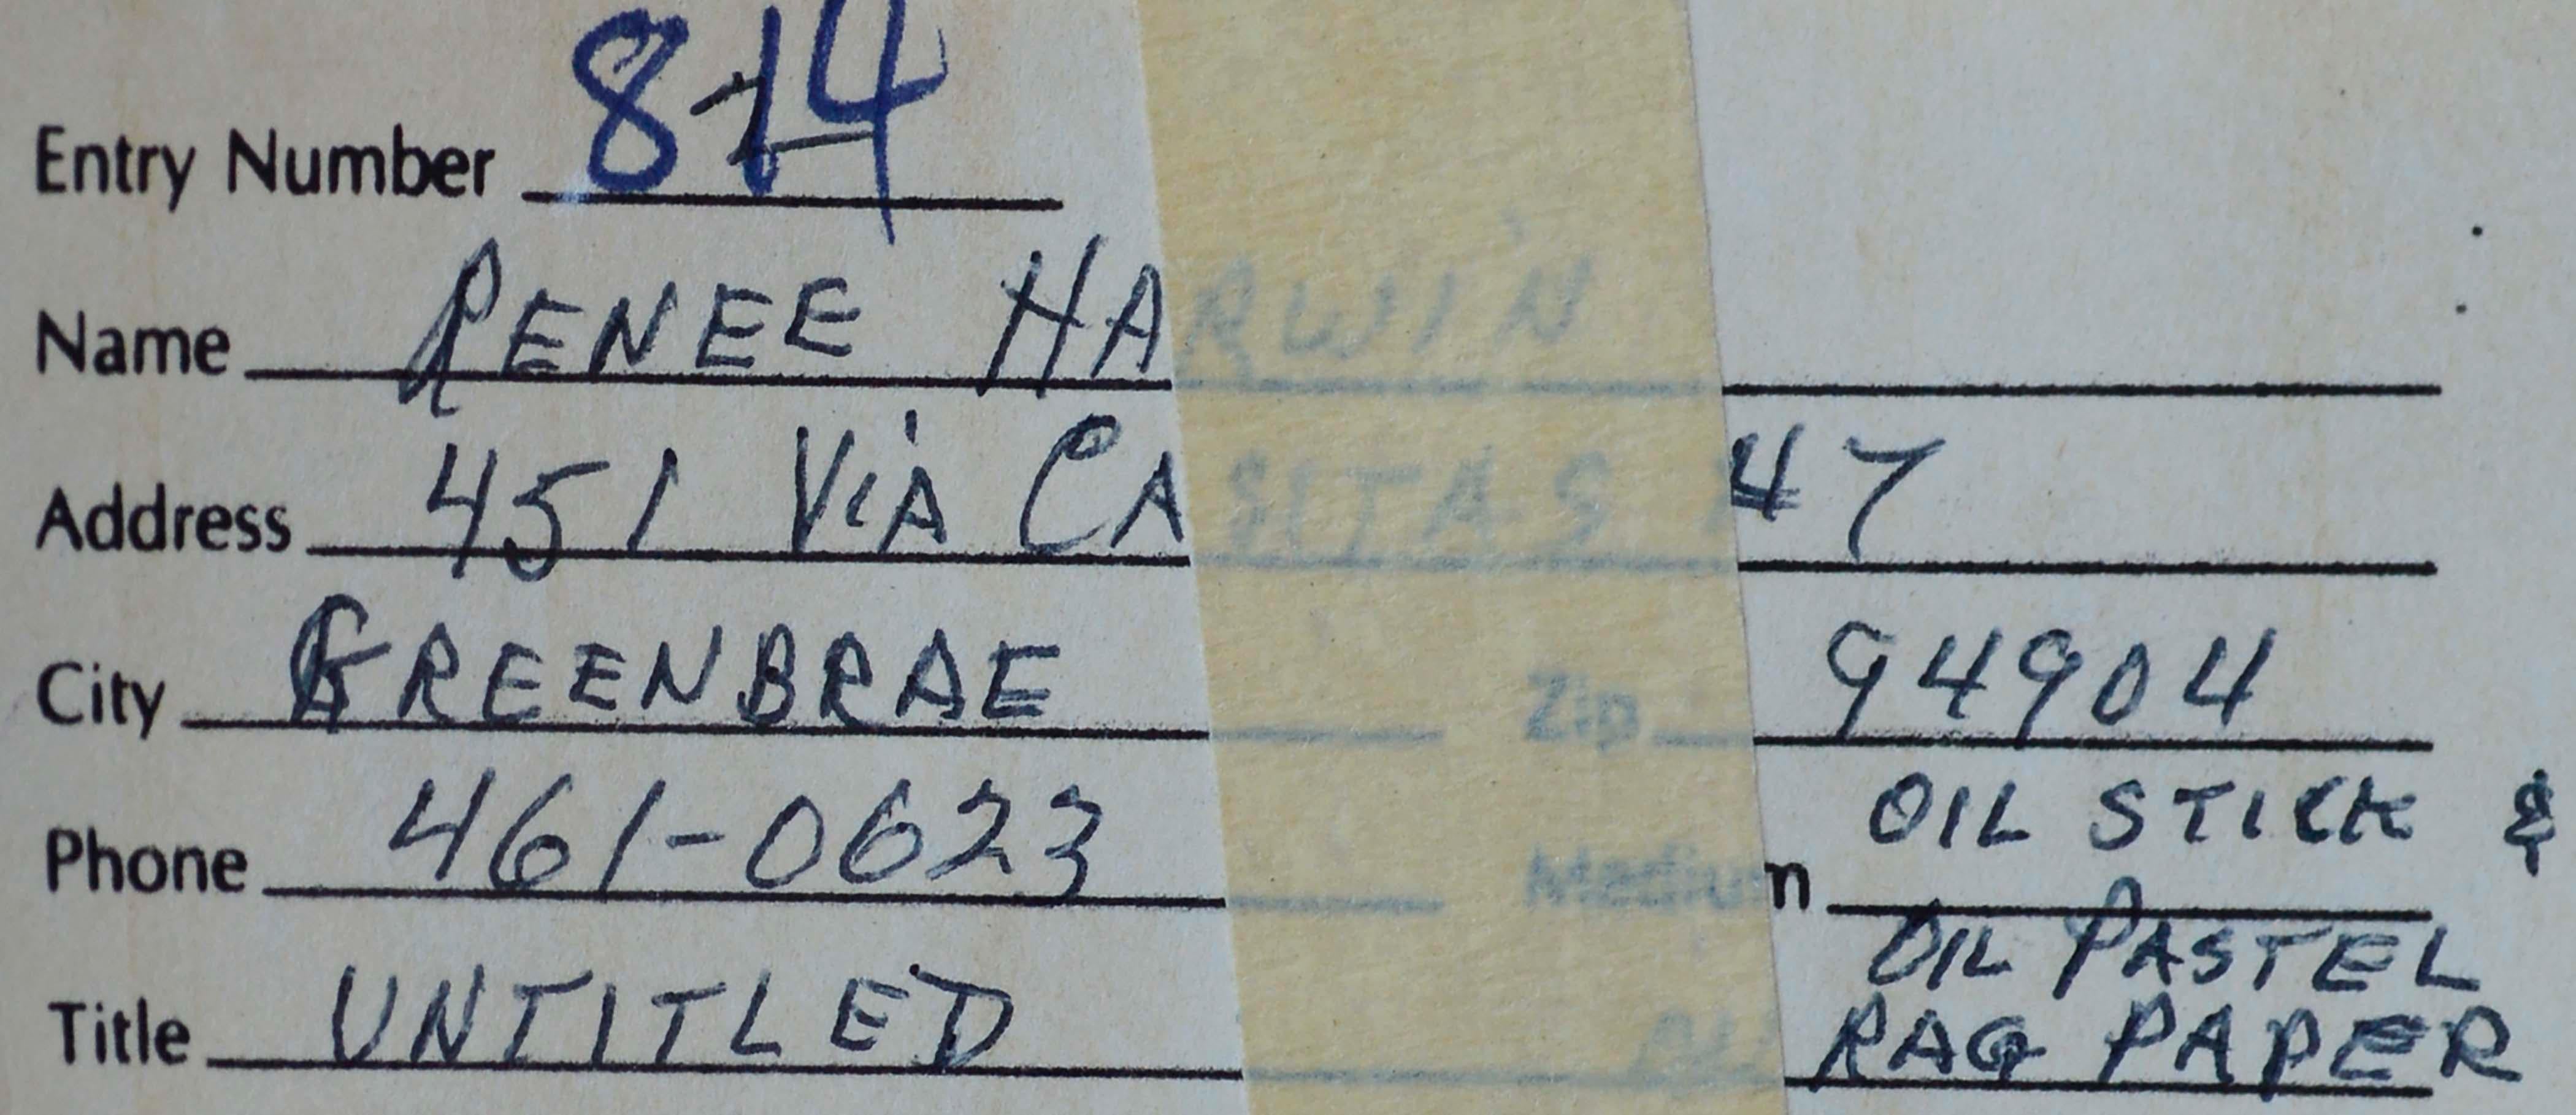 Entry Number 814
Name RENEE HARWIN
Address 451 VIA CASITAS #47
City GREENBRAE Zip 94904
OIL STICK &
Phone 461-0623 Medium
OIL PASTEL
Title UNTITLED RAG PAPER